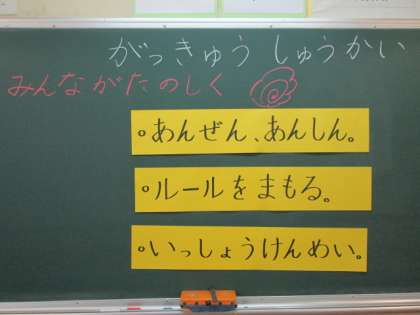 がっきゅう しゅうかい
みんながたのしく
・あんぜん、あんしん。
・ルールをまもる。
・いっしょうけんめい。